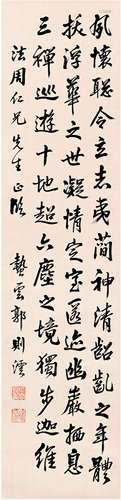 夙懷聰令立志夷蕳神清齠齔之年體
拔浮華之世凝情定室匿迹幽巖栖息
三禪巡遊十地超六塵之境獨步迦維
法周仁兄先生正臨
蟄雲郭則澐